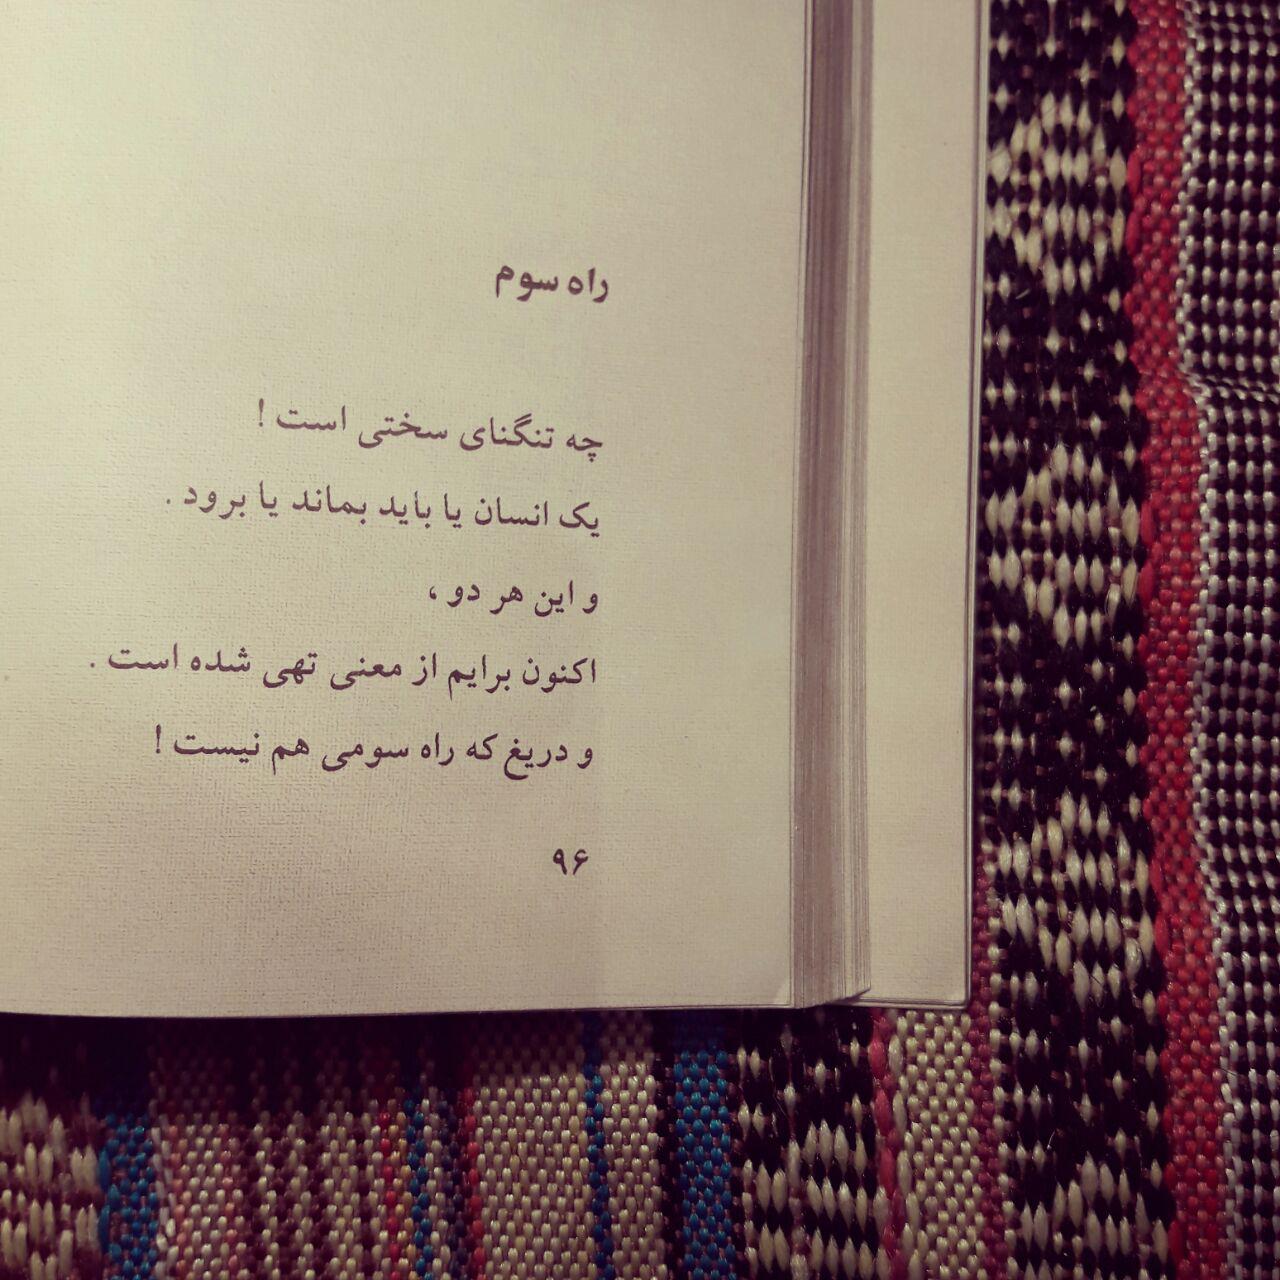 راه سوم
چه تنگنای سختی است !
یک انسان یا باید بماند یا برود .
و این هر دو ،
اکنون برایم از معنی تهی شده است .
و دریغ که راه سومی هم نیست !
۹۶